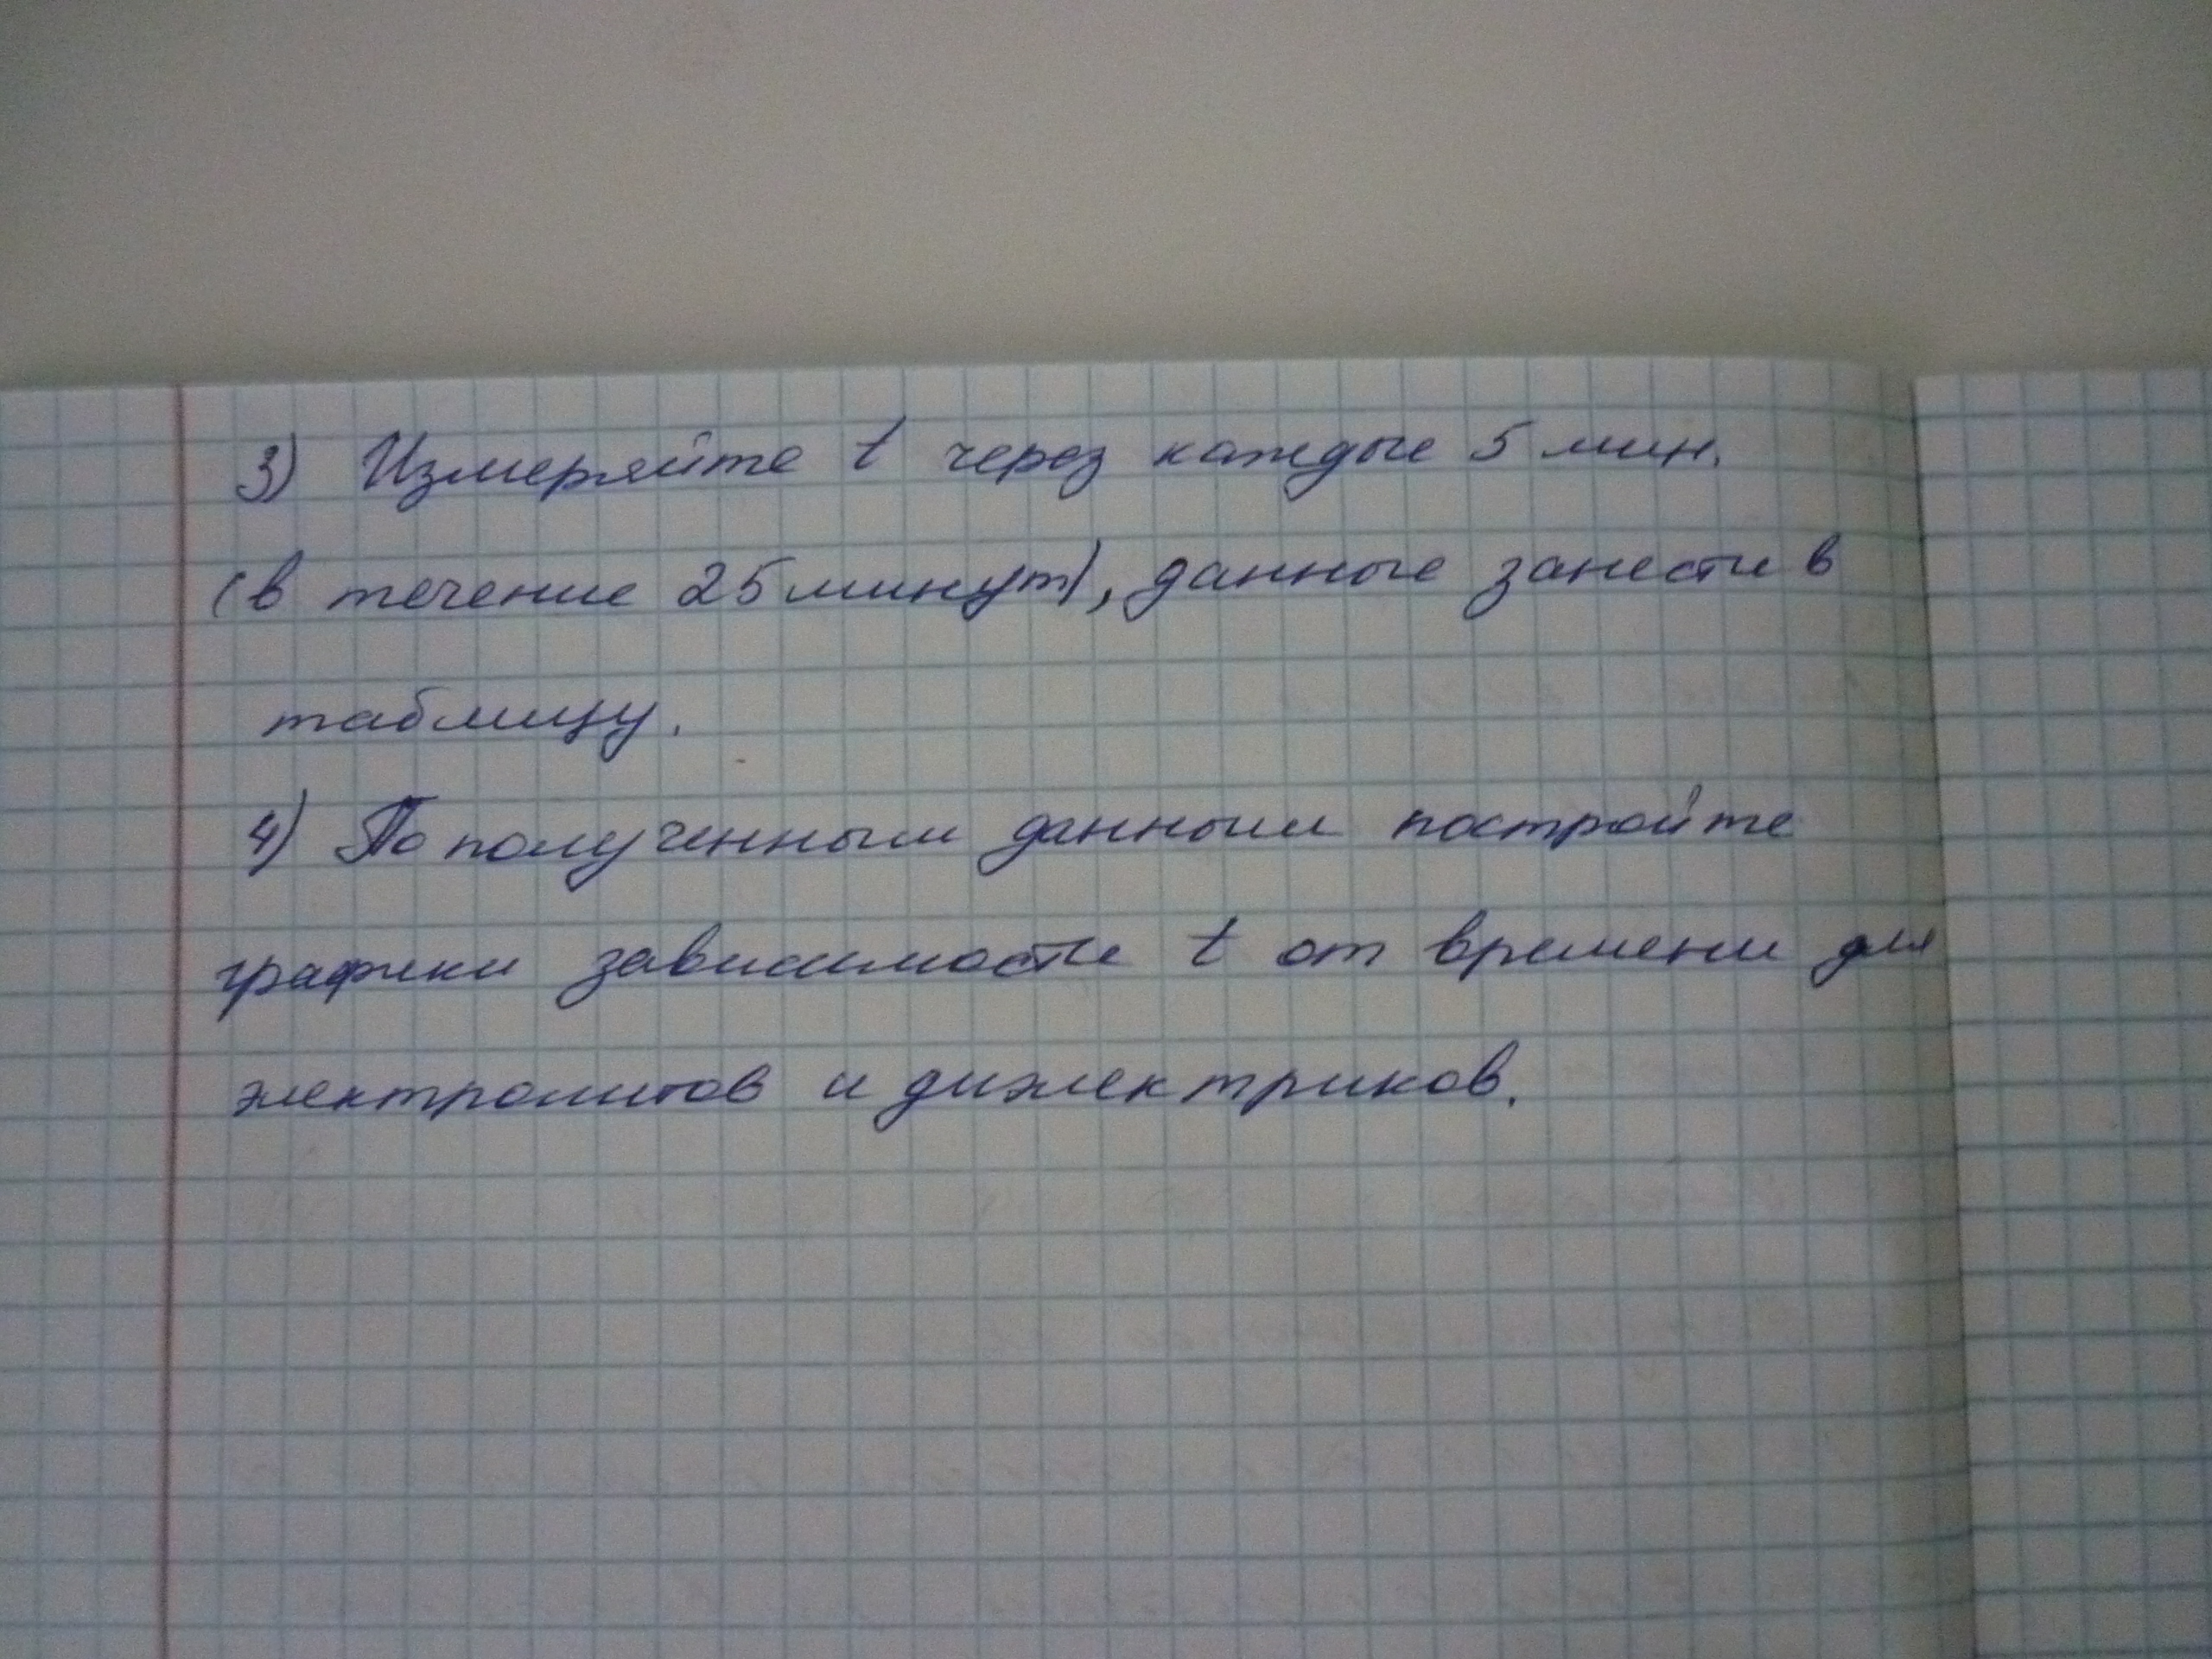 3) Измеряйте t через каждые 5 мин.
(в течение 25 минут), данные занести в
таблицу.
4) По полученным данным постройте
графики зависимости t от времени для
электролитов и диэлектриков.